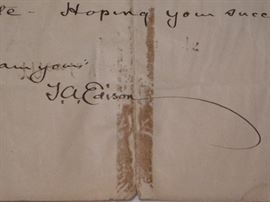 Hoping your succ
am your
T.A. Edison